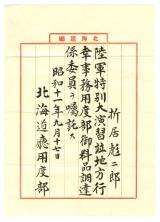 北海道廳
折居彪二郎
陸軍特別大演習竝地方行
幸事務用度部御料品調達
係委員ヲ囑託ス
昭和十一年九月十七日
北海道廳用度部